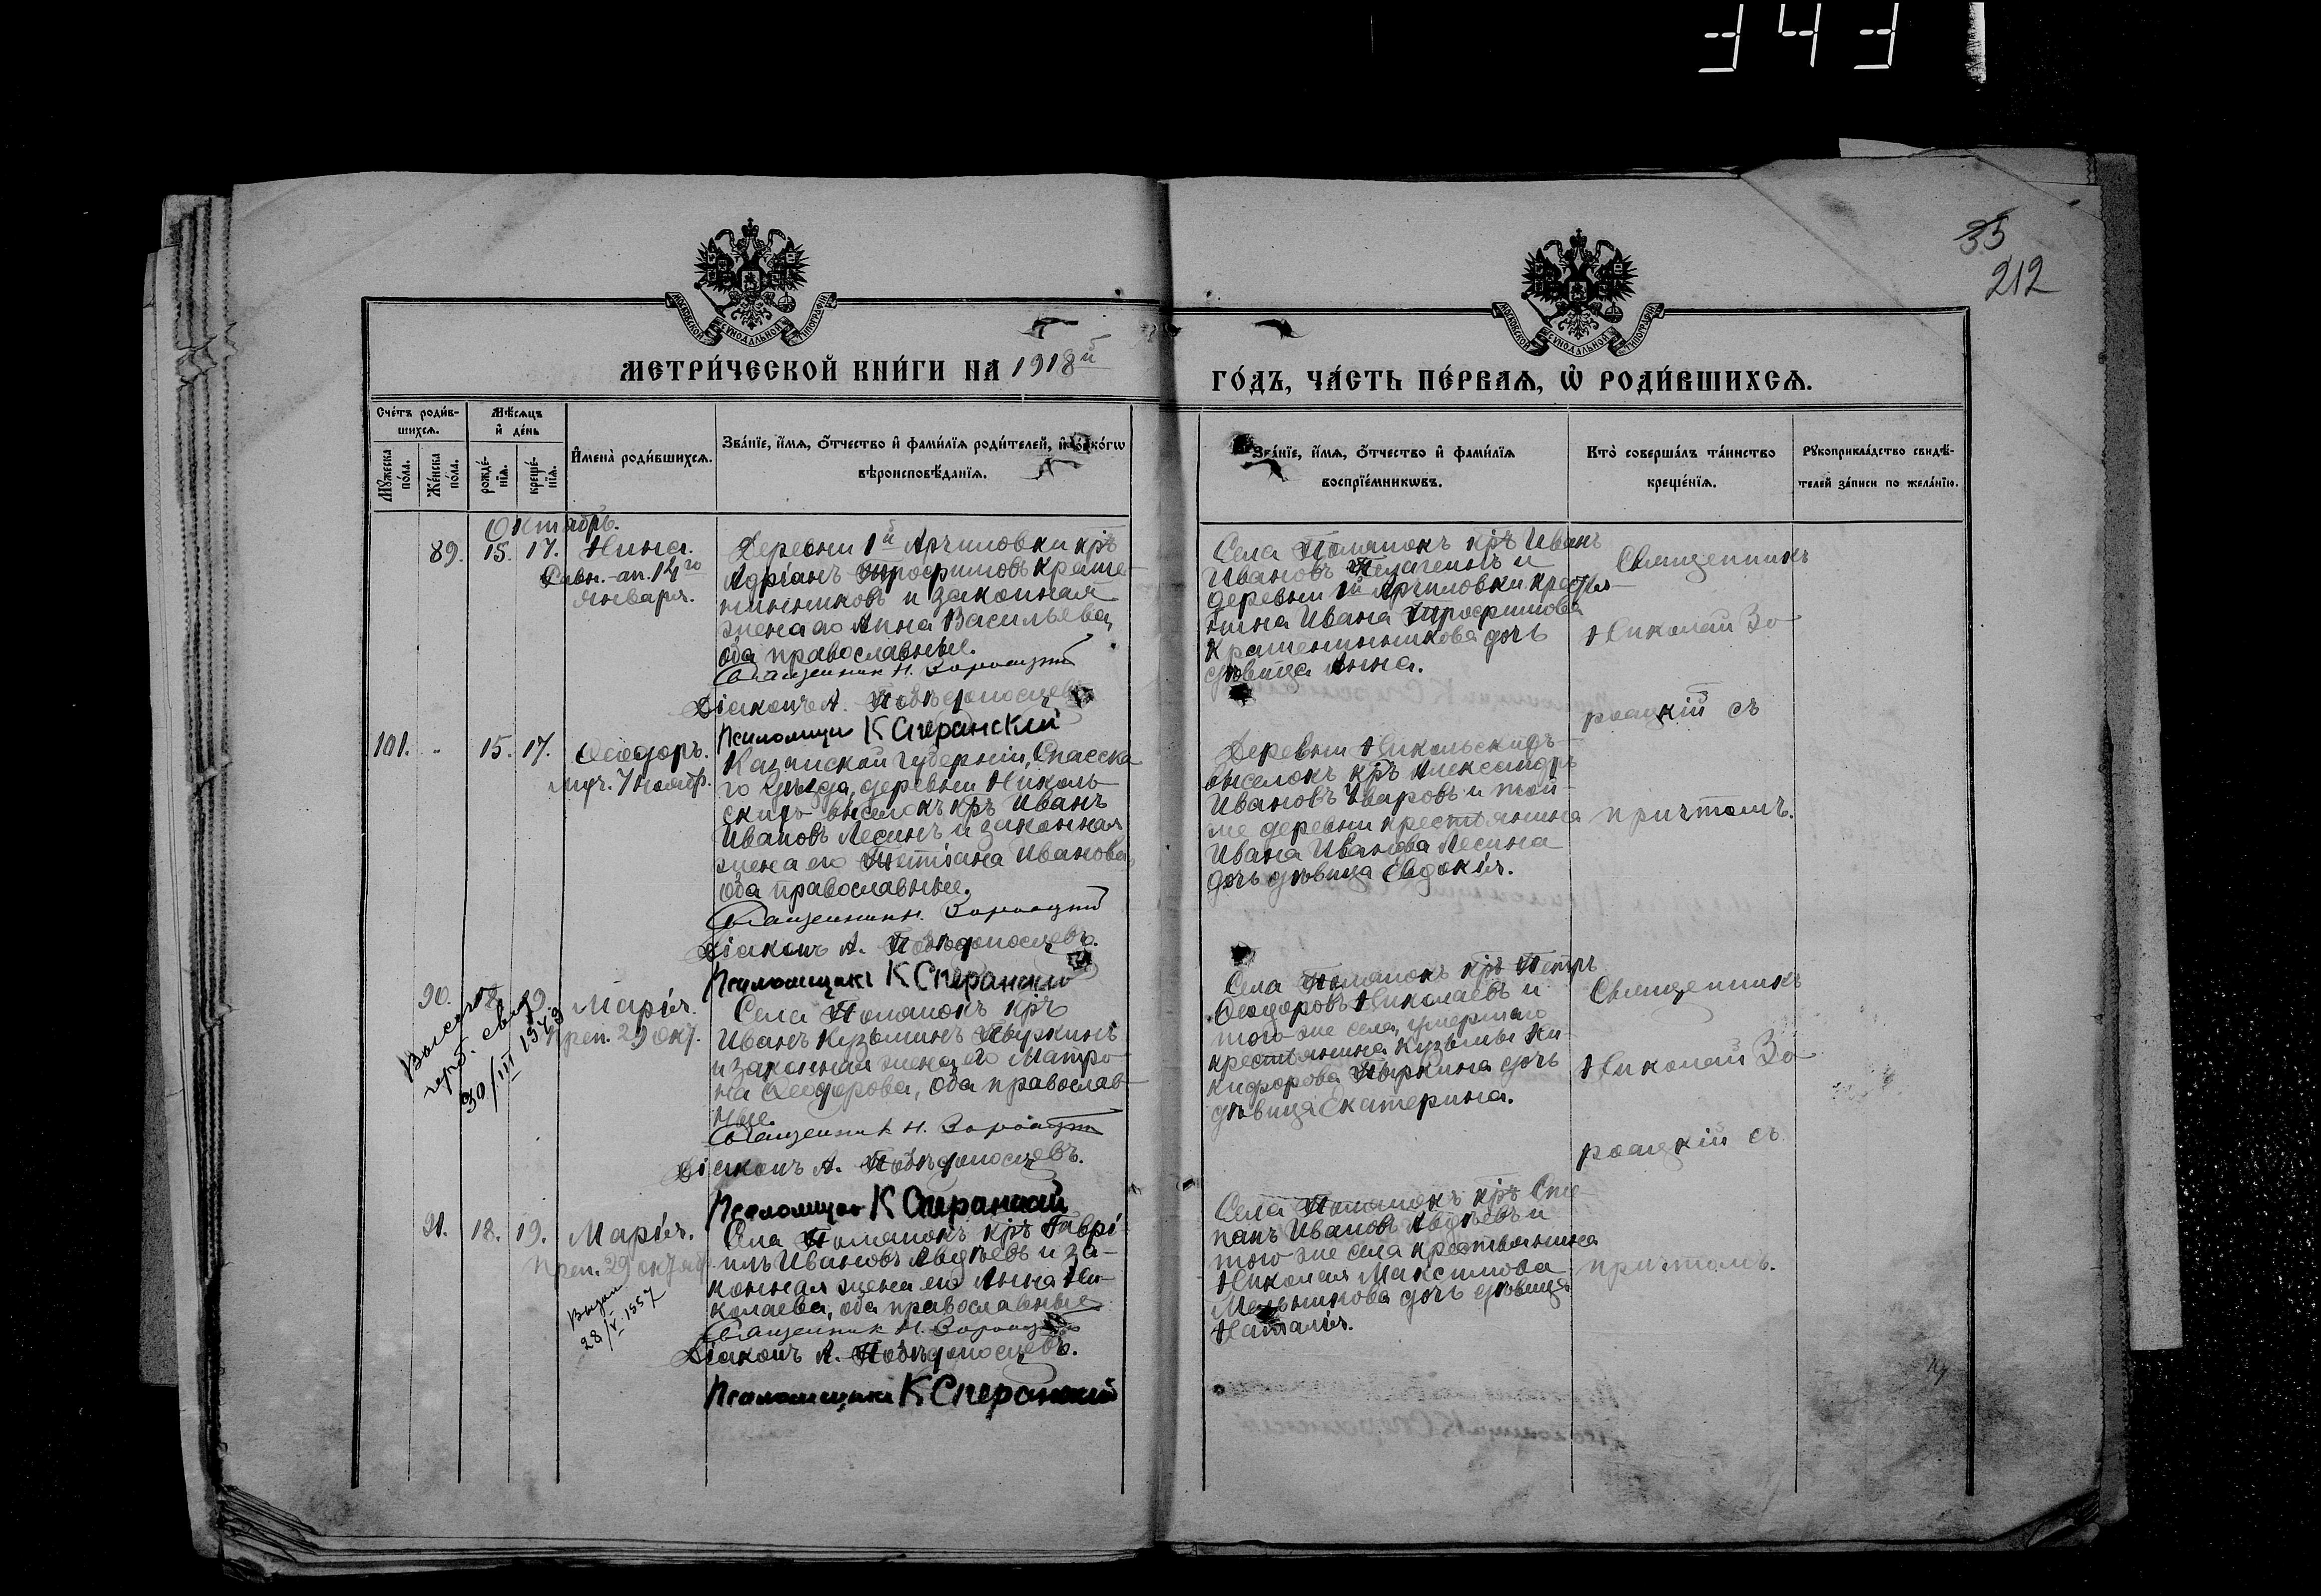 343
35
212
МОСКОВСКОЙ СУНОДАЛЬНОЙ ТИПОГРАФІИ
МОСКОВСКОЙ СУНОДАЛЬНОЙ ТИПОГРАФІИ
МЕТРИ́ЧЕСКОЙ КНИ́ГИ НА 1918й
ГО́ДЪ, ЧА́СТЬ ПЕ́РВАѦ, Ѽ РОДИ́ВШИХСѦ.
Сче́тъ роди́в-
шихсѧ.
Мꙋжеска по́ла.
Же́нска по́ла.
Мѣ́сяцъ и де́нь
рожде́-
нїѧ.
креще́-
нїѧ.
И҆мена̀ роди́вшихсѧ.
Зва́нїе, и҆́мѧ, ѻ҆́тчество и҆ фами́лїѧ роди́телей, и҆ какогѡ
вѣроисповѣ́данїѧ.
Зва́нїе, и҆́мѧ, ѻ҆́тчество и҆ фами́лїѧ
воспрїе́мникѡвъ.
Кто̀ соверша́лъ та́инство
креще́нїѧ.
Рꙋкоприкла́дство свидѣ́-
телей за́писи по жела́нїю.
Октябрь.
89. 15. 17. Нина.
Равн.-ап. 14го
января.
Деревни 1й Арчиловки кръ
Адріанъ Трофимовъ Краше-
нинниковъ и законная
жена его Анна Васильева,
оба православные.
Священник Н.
Діаконъ А. Побѣдоносцевъ
Псаломщик К Сперанский
Села кръ Иванъ
Ивановъ и
деревни 1й Арчиловки крестья-
нина Ивана Трофимова
Крашенинникова дочь
дѣвица Анна.
Священникъ
Николай Зо
роацкій съ
причтомъ.
101. " 15. 17. Ѳеодоръ.
муч. 7 нояб.
Казанской губерніи, Спасска-
го уѣзда, деревни Николь-
скихъ выселокъ кръ Иванъ
Ивановъ Лесинъ и законная
жена его Татіана Иванова,
оба православные.
Священник Н.
Діаконъ А. Побѣдоносцевъ.
Псаломщик К Сперанский
Деревни Никольскихъ
выселокъ кръ Александръ
Ивановъ Уваровъ и той-
же деревни крестьянина
Ивана Иванова Лесина
дочь дѣвица Евдокія.
90. 18. 19. Марія.
преп. 29 окт.
30/III 1949
Села кръ
Иванъ Кузьминъ Пыркинъ
и законная жена его Матро-
на Ѳеодорова, оба православ-
ные.
Священник Н.
Діаконъ А. Побѣдоносцевъ.
Псаломщик К Сперанский
Села кръ Петръ
Ѳеодоровъ Николаевъ и
того-же села, умершаго
крестьянина Кузьмы Ни-
кифорова Пыркина дочь
дѣвица Екатерина.
Священникъ
Николай Зо
роацкій съ
причтомъ.
91. 18. 19. Марія.
преп. 29 октяб.
28/V 1957
Села кръ Гаврі-
илъ Ивановъ Авдѣевъ и за-
конная жена его Анна Ни-
колаева, оба православные
Священник Н.
Діаконъ А. Побѣдоносцевъ.
Псаломщик К Сперанский
Села кръ Сте-
панъ Ивановъ Авдѣевъ и
того-же села крестьянина
Николая Максимова
Мельникова дочь дѣвица
Наталія.